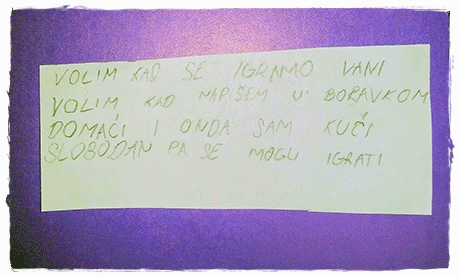 VOLIM KAD SE IGRAMO VANI
VOLIM KAD NAPIŠEM U BORAVKOM
DOMAĆI I ONDA SAM KUĆI
SLOBODAN PA SE MOGU IGRATI